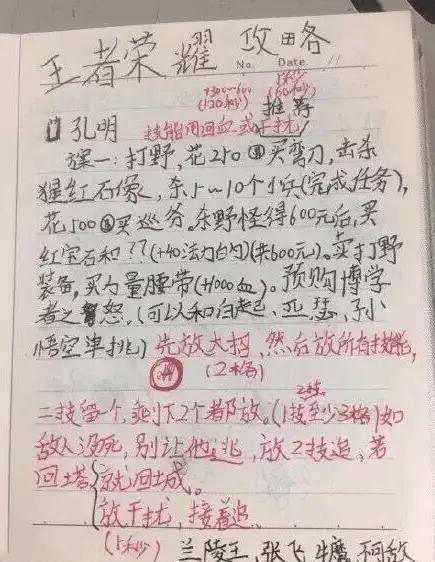 王者荣耀 攻略
No. Date. 11
+300~600 (60秒)
(120秒) 推荐
孔明 技能用回血或干扰
方案一:打野,花250买弯刀,击杀
猩红石像,杀5~10个小兵(完成任务),
花500买巡务。杀野怪得600元后,买
红宝石和??(+40法力白勺)(共600元)。卖打野
装备,买力量腰带(+1000血)。预购博学
者之怒。(可以和白起、亚瑟、孙
悟空单挑)先放大招,然后放所有技能,
(2格)
二技留一个,剩下2个都放。(1技至少3格)如
敌人没死,别让他逃,放2技追,若
回塔就回城。
放干扰,接着追、
(5秒) 兰陵王,张飞,牛魔,阿敌